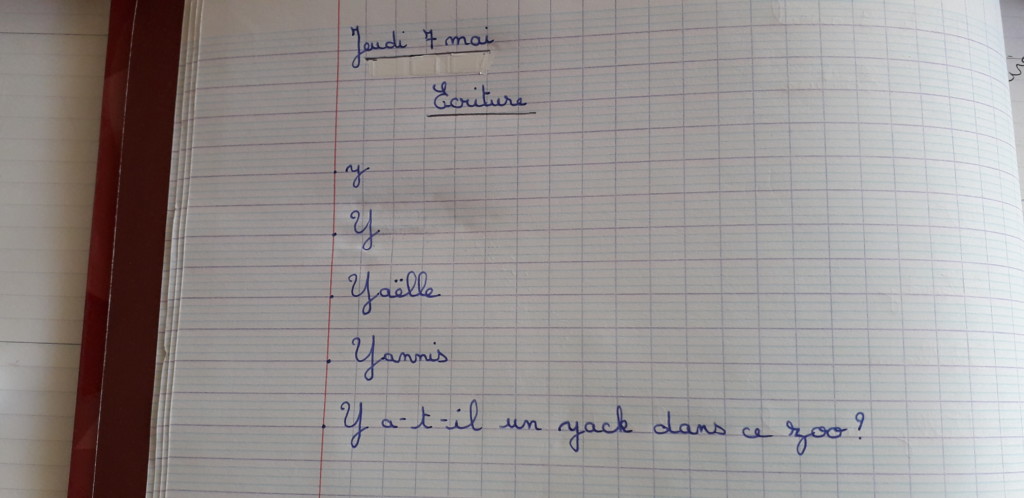 Jeudi 7 mai
Ecriture
y
Y
Yaëlle
Yannis
Y a-t-il un yack dans ce zoo ?